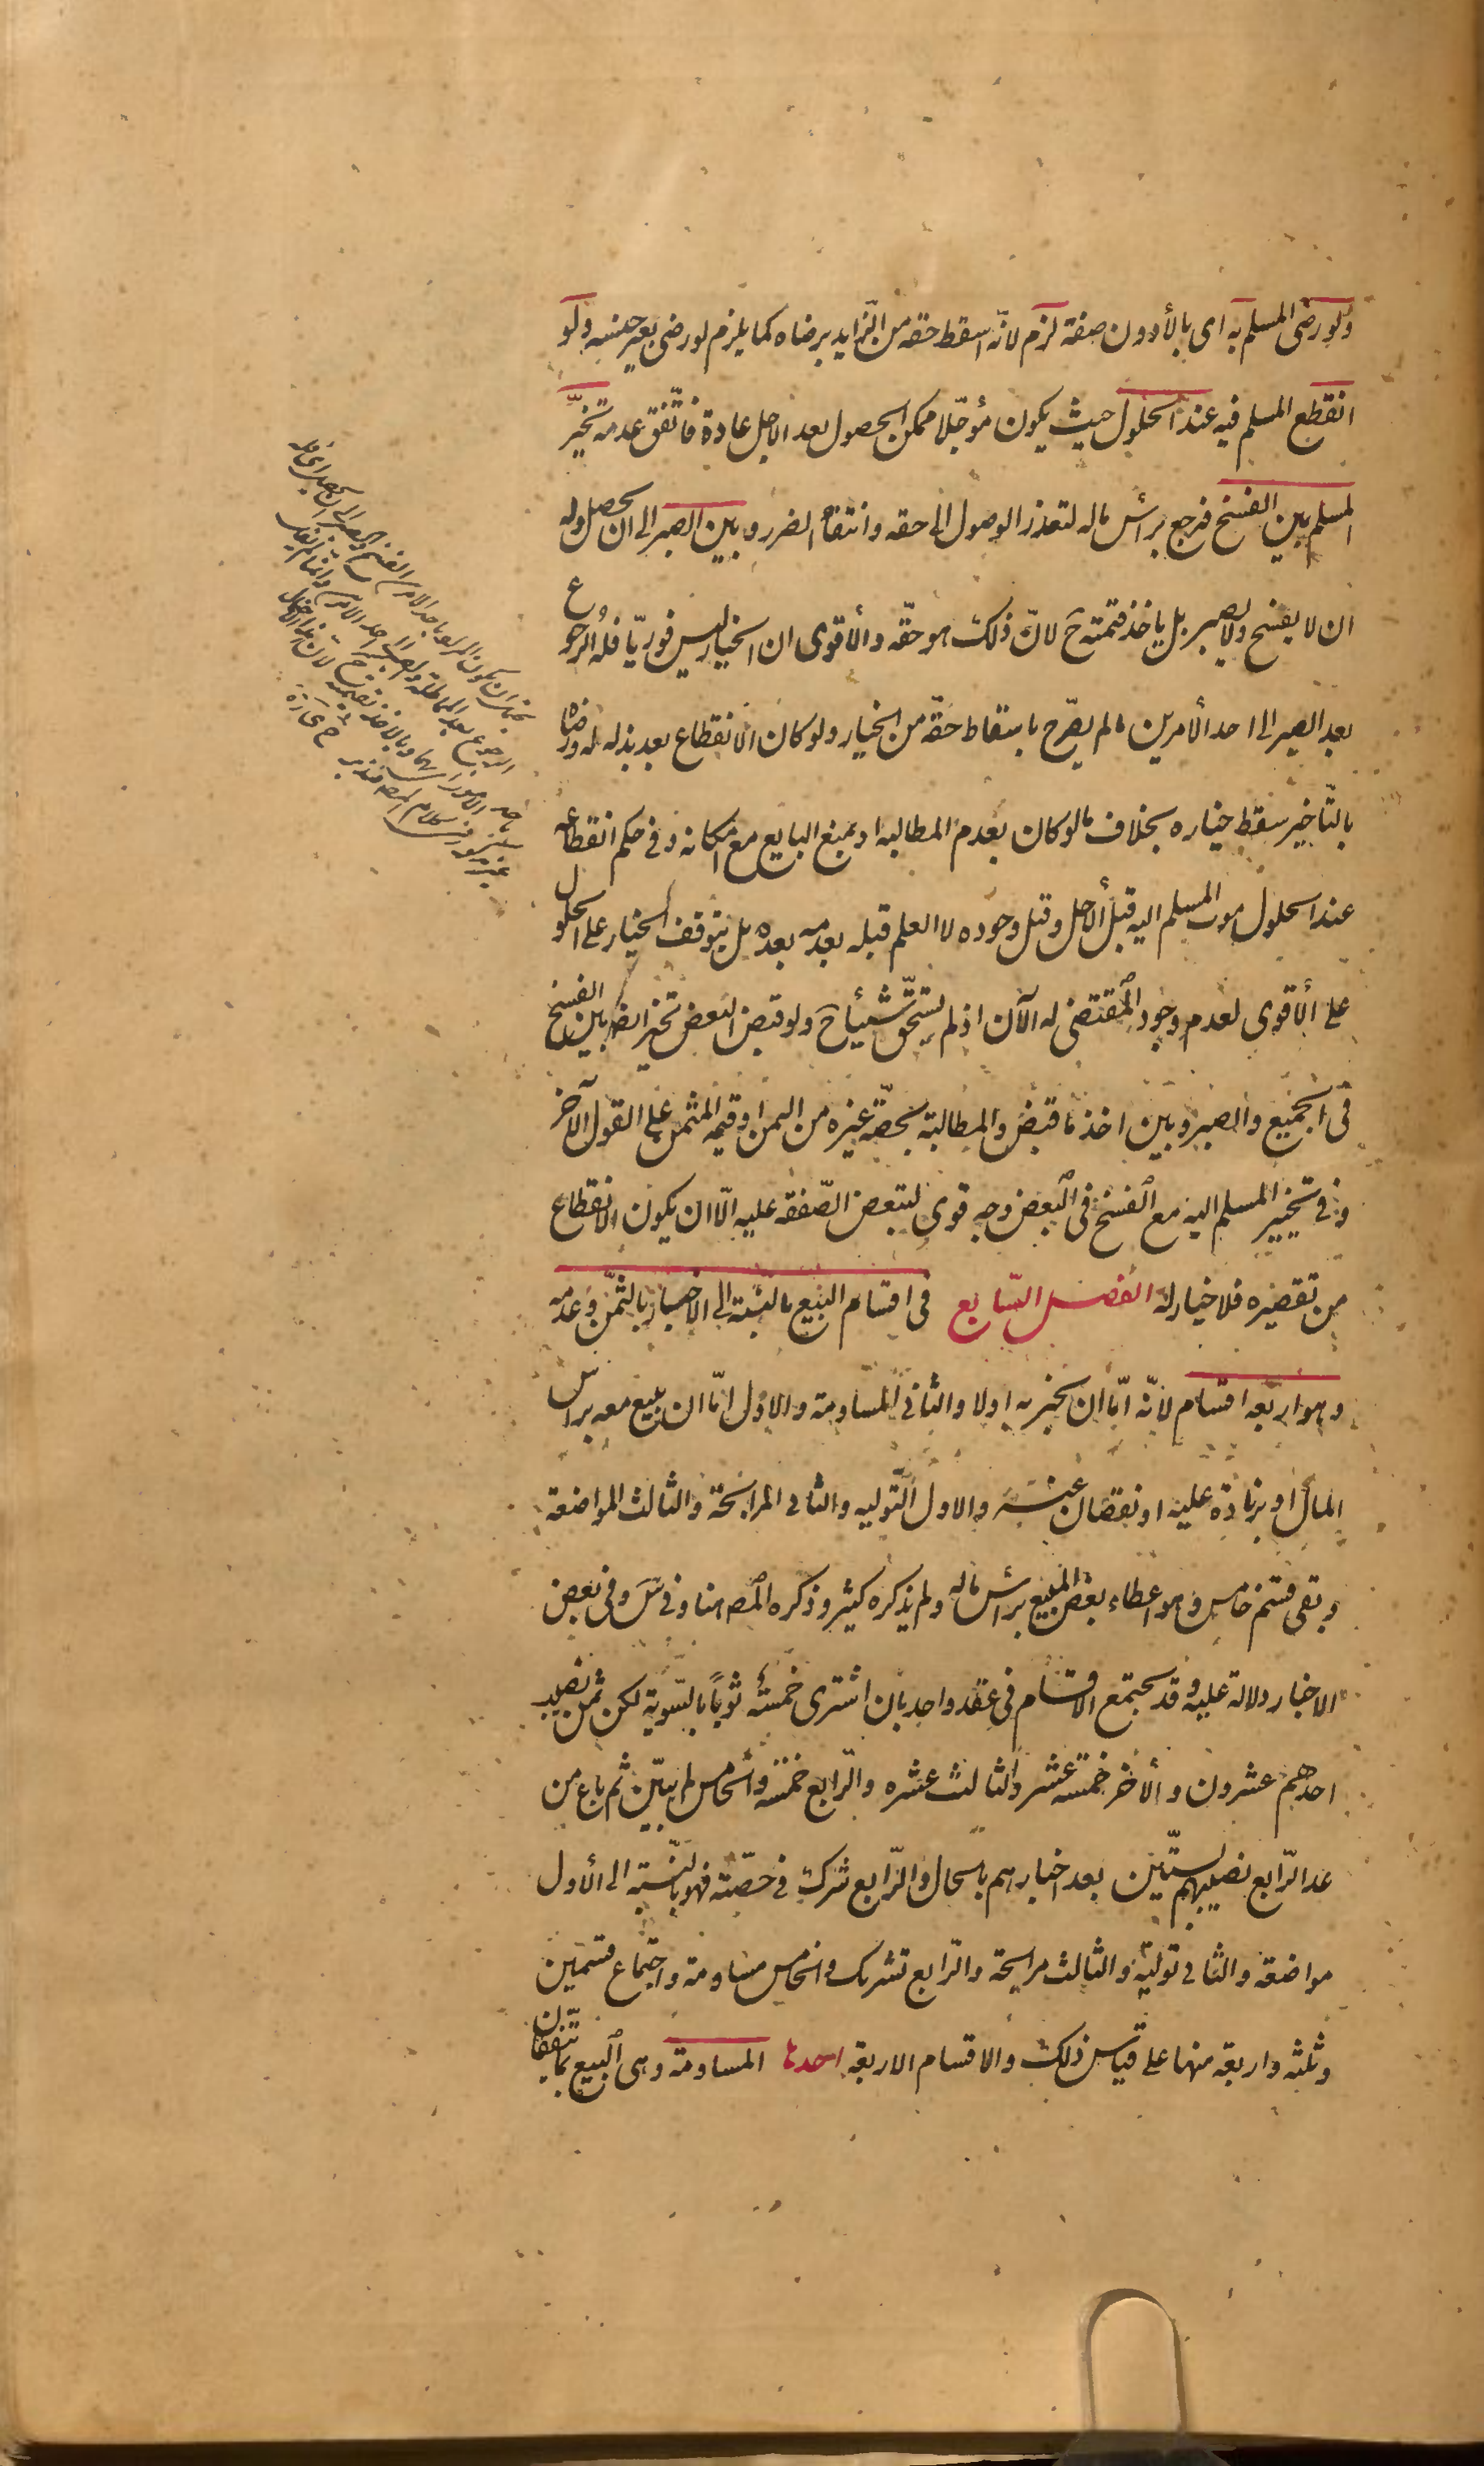 ولو رضى المسلم به اى بالأدون صفة لزم لانّه اسقط حقه من الزّايد برضاه كما يلزم لو رضى بغير جنسه ولو
انقطع المسلم فيه عند الحلول حيث يكون مؤجّلا ممكن الحصول بعد الاجل عادة فاتّفق عدمه تخيّر
المسلم بين الفسخ فيرجع برأس ماله لتعذر الوصول الى حقه وانتفاء الضرر وبين الصبر الى ان يحصل وله
ان لا يفسخ ولا يصبر بل ياخذ قيمته ح لانّ ذلك هو حقّه والأقوى ان الخيار ليس فوريّا فله الرجوع
بعد الصبر الى احد الأمرين ما لم يصرّح باسقاط حقّه من الخيار ولو كان الانقطاع بعد بذله له ورضاه
بالتّاخير سقط خياره بخلاف ما لو كان بعدم المطالبه او بمنع البايع مع امكانه وفى حكم انقطاعه
عند الحلول موت المسلم اليه قبل الأجل وقبل وجوده لا العلم قبله بعدمه بعده بل يتوقف الخيار على الحلول
على الأقوى لعدم وجود المقتضى له الآن اذ لم يستحقّ شيئا ح ولو قبض البعض تخير ايض بين الفسخ
فى الجميع والصبر وبين اخذ ما قبض والمطالبة بحصّة غيره من الثمن او قيمة المثمن على القول الآخر
وفى تخيير المسلم اليه مع الفسخ فى البعض وجه قوى لتبعض الصّفقه عليه الّا ان يكون الانقطاع
من تقصيره فلا خيار له الفصل السّابع فى اقسام البيع بالنّسبة الى الاخبار بالثّمن وعدمه
وهو اربعه اقسام لانّه امّا ان يخبر به او لا والثانى المساومة والاوّل امّا ان يبيع معه براس
المال او بزيادة عليه او نقصان عنه والاول التّوليه والثانى المرابحة والثالث المواضعة
وبقى قسم خامس وهو اعطاء بعض المبيع براس ماله ولم يذكره كثير وذكره المص هنا وفى س وفى بعض
الاخبار دلالة عليه وقد يجتمع الاقسام فى عقد واحد بان اشترى خمسة ثوباً بالسّوية لكن ثمن نصيب
احدهم عشرون والآخر خمسة عشر والثالث عشره والرّابع خمسة والخامس لم يبيّن ثم باع من
عدا الرّابع نصيبهم بستّين بعد اخبارهم بالحال والرّابع شرك فى حصّته فهو بالنّسبة الى الأول
مواضعة والثانى تولية والثالث مرابحة والرّابع تشريك والخامس مساومة واجتماع قسمين
وثلثه واربعة منها على قياس ذلك والاقسام الاربعة احدها المساومة وهى البيع بما يتّفقان